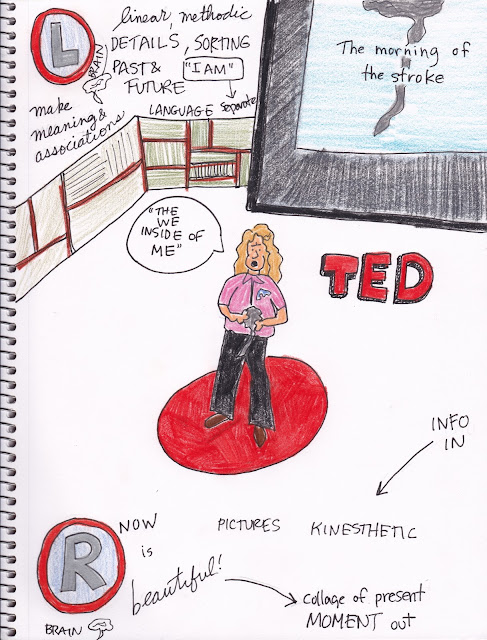 L
BRAIN
linear, methodic
DETAILS, SORTING
PAST & "I AM"
FUTURE
LANGUAGE separate
make
meaning &
associations
The morning of
the stroke
"THE
WE
INSIDE OF
ME"
TED
INFO
IN
R
BRAIN
NOW
is
beautiful!
PICTURES KINESTHETIC
collage of present
MOMENT out